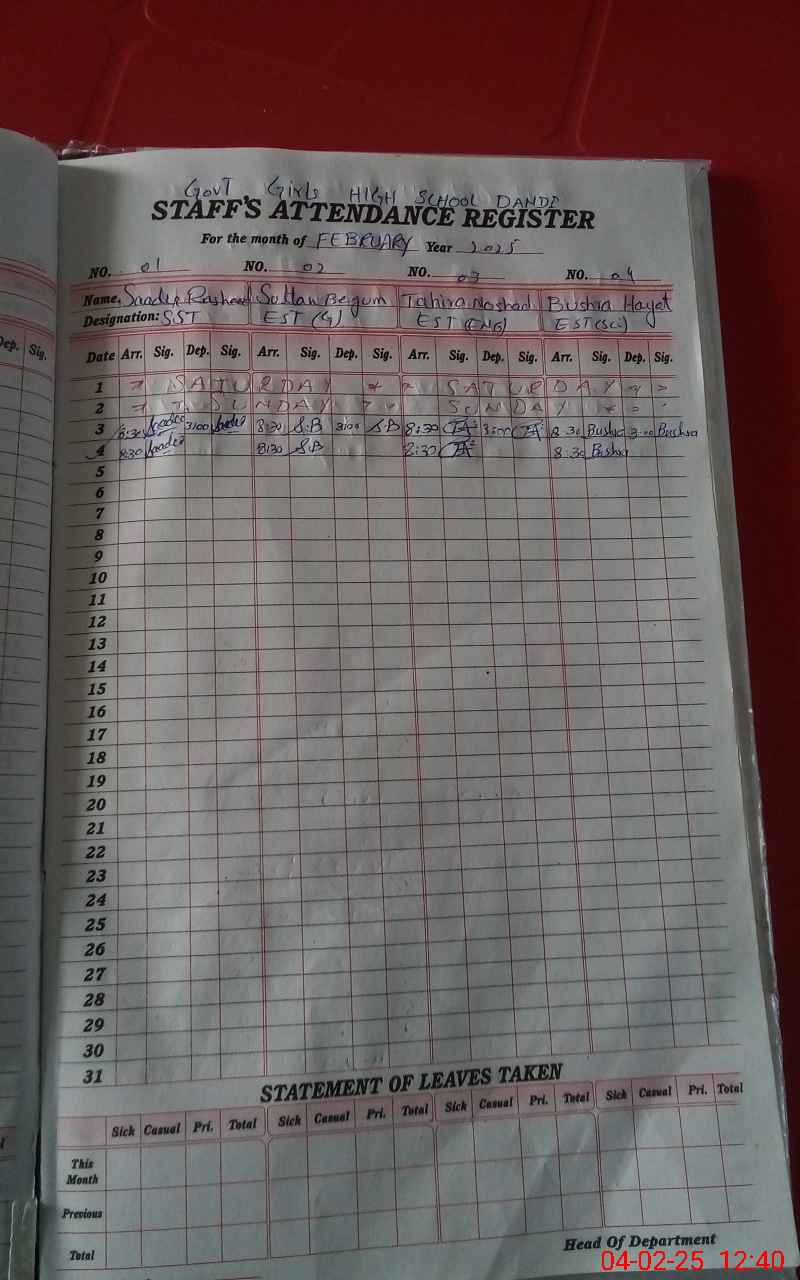 GOVT Girls HIGH SCHOOL DANDE
STAFF'S ATTENDANCE REGISTER
For the month of FEBRUARY Year 2025
NO. 01 NO. 02 NO. 03 NO. 04
Name, Rasheed Sultan Begum Tahira Noshad Bushra Hayat
Designation: SST EST (G) EST (ENG) EST (Sci)
Dep. Sig.
Date Arr. Sig. Dep. Sig. Arr. Sig. Dep. Sig. Arr. Sig. Dep. Sig. Arr. Sig. Dep. Sig.
1 SATURDAY SATURDAY
2 SUNDAY SUNDAY
3 8:30 3:00 8:30 S.B 3:00 S.B 8:30 3:00 8:30 Bushra 3:00 Bushra
4 8:30 8:30 S.B 8:30 8:30 Bushra
5
6
7
8
9
10
11
12
13
14
15
16
17
18
19
20
21
22
23
24
25
26
27
28
29
30
31
STATEMENT OF LEAVES TAKEN
Sick Casual Pri. Total Sick Casual Pri. Total Sick Casual Pri. Total Sick Casual Pri. Total
This
Month
Previous
Total
Head Of Department
04-02-25 12:40